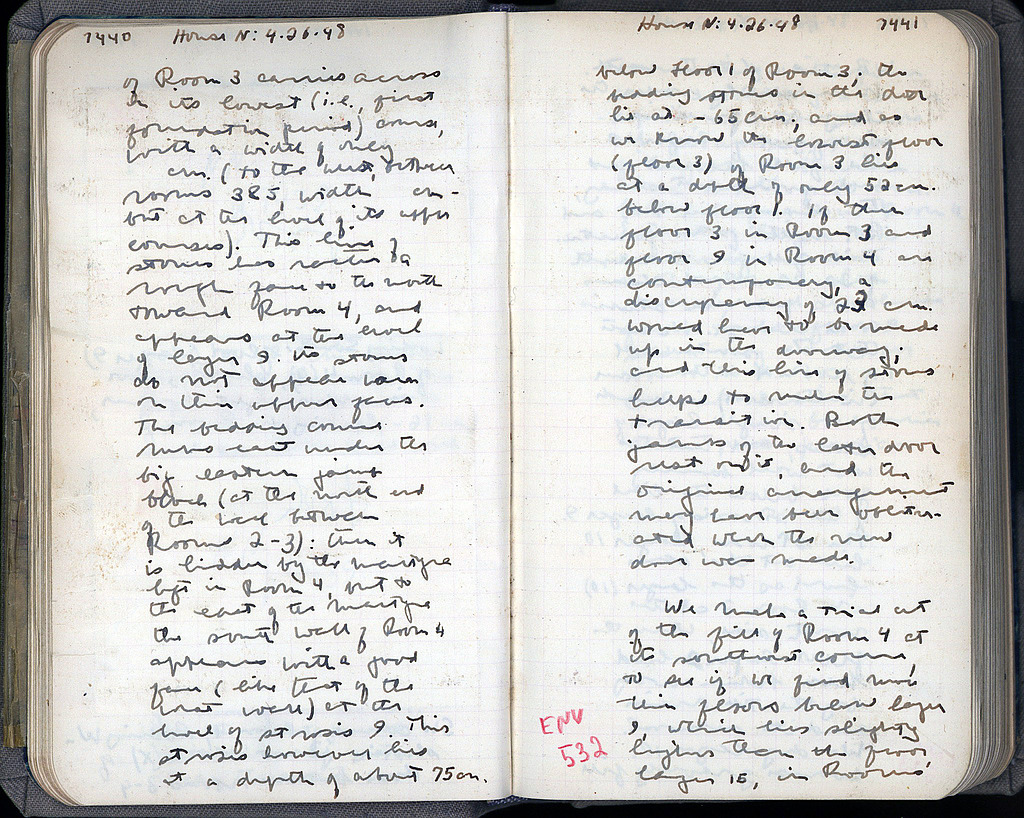 7440 House N: 4.26.48
of Room 3 carries across
in its lowest (i.e., first
foundation period) course,
with a width of only
cm. (to the west, between
rooms 3&5, width cm-
but at the level of its upper
courses). This line of
stones has rather a
rough face to the north
toward Room 4, and
appears at the level
of layer 9. Its stones
do not appear worn
on their upper faces.
The bedding course
runs east under the
big eastern jamb
block (at the north end
of the wall between
Rooms 2-3): then it
is hidden by the martyra
left in Room 4, but to
the east of the martyra
the south wall of Room 4
appears with a good
face (like that of the
west wall) at the
level of strosis 9. This
strosis however lies
at a depth of about 75cm.
House N: 4.26.48 7441
below floor 1 of Room 3. The
bedding stones in the door
lie at -65cm; and as
we know the lowest floor
(floor 3) of Room 3 lies
at a depth of only 52cm.
below floor 1. If then
floor 3 in Room 3 and
floor 9 in Room 4 are
contemporary, a
discrepancy of 23 cm.
would have to be made
up in the doorway;
and this line of stones
helps to make the
transition. Both
jambs of the later door
rest on it, and the
original arrangement
may have been obliter-
ated when the new
door was made.
We make a trial cut
of the fill of Room 4 at
its southwest corner,
to see if we find more
thin floors below layer
9, which lies slightly
higher than the floor,
layer 15, in Rooms
ENV
532